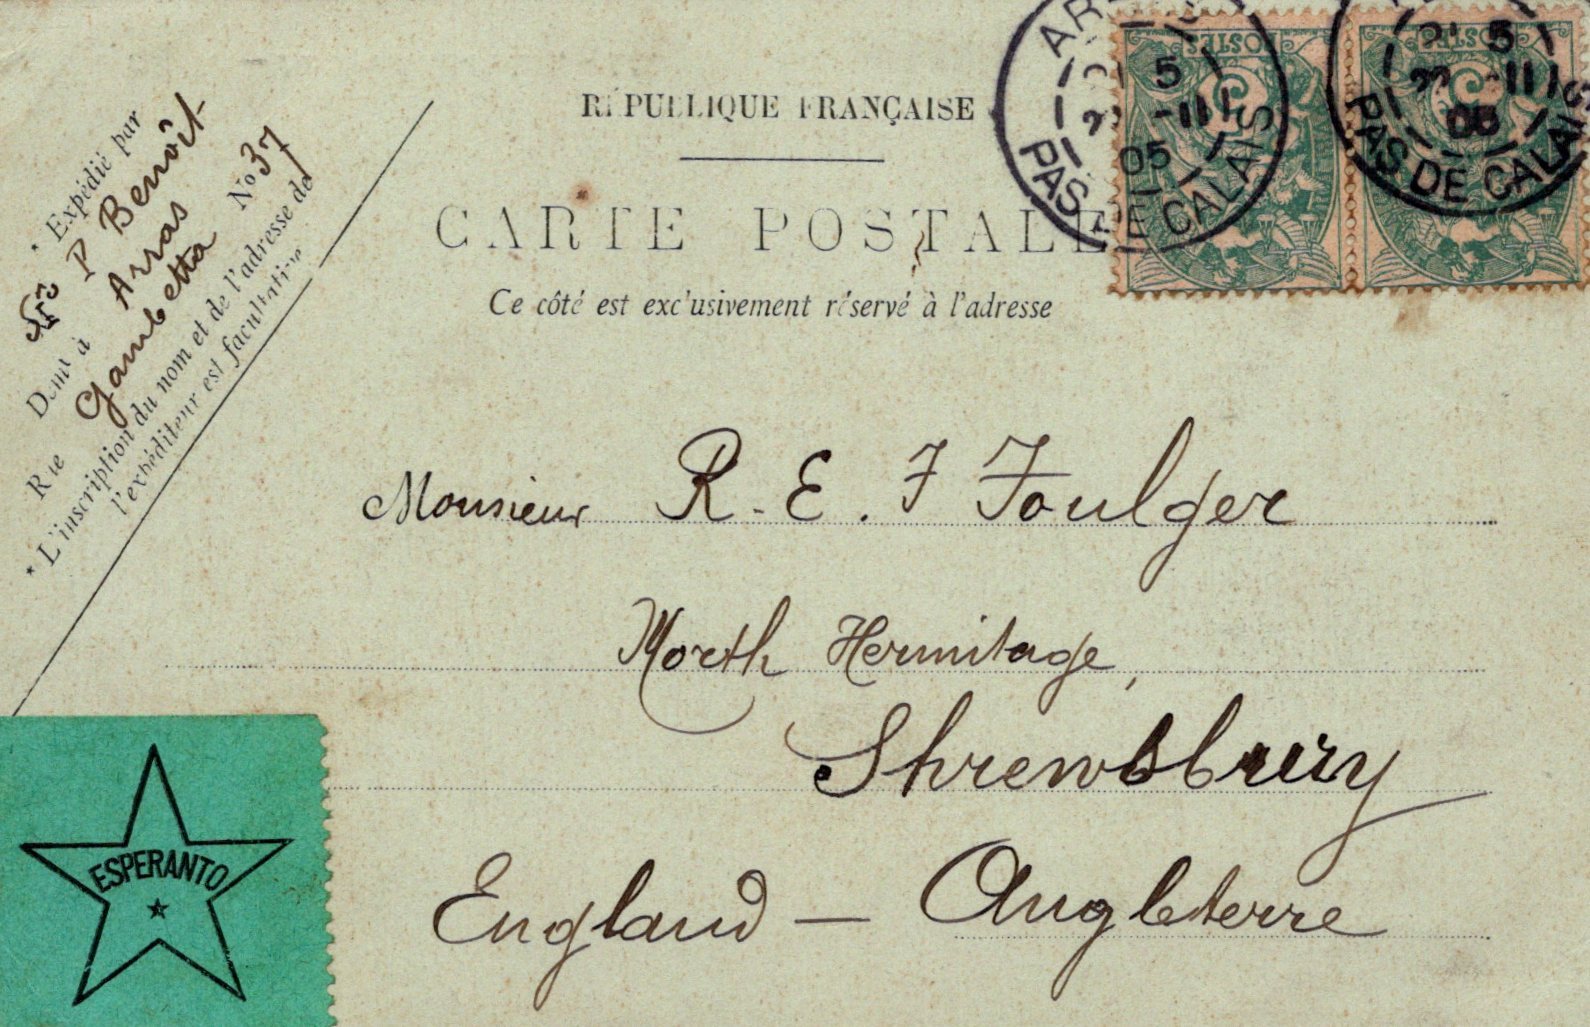 * Expédié par
P Benoît
Demt à Arras
Rue Gambetta No 37
* L'inscription du nom et de l'adresse de
l'expéditeur est facultative
RÉPUBLIQUE FRANÇAISE
CARTE POSTALE
Ce côté est exclusivement réservé à l'adresse
POSTES
5
5
22 -11
05
PAS DE CALAIS
POSTES
5
5
22 -11
05
PAS DE CALAIS
Monsieur R. E. F Foulger
North Hermitage,
Shrewsbury
England — Angleterre
ESPERANTO